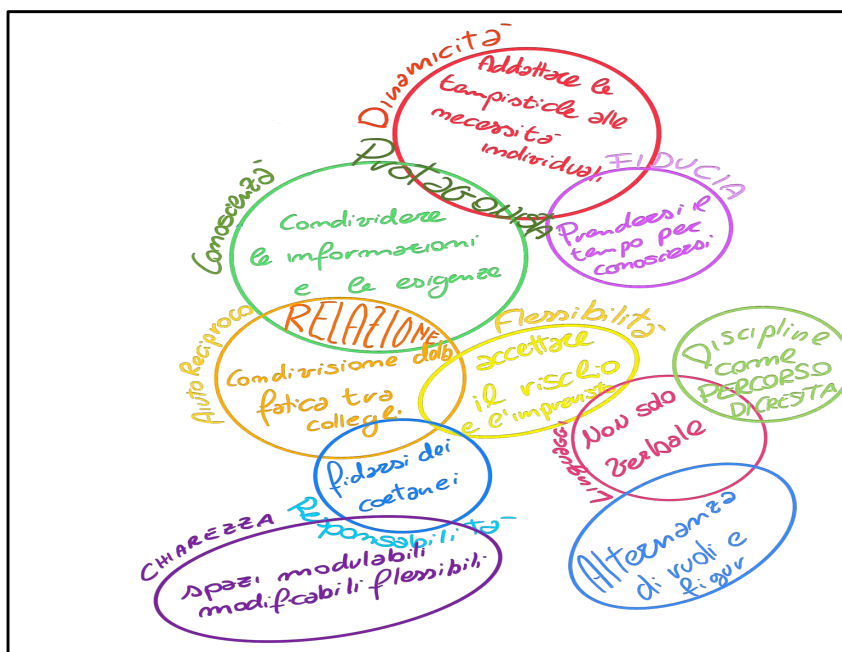 Dinamicità
Addattare le
tempistiche alle
necessità
individuali
FIDUCIA
Prendersi il
tempo per
conoscersi
Conoscenza
Protagonista
Condividere
le informazioni
e le esigenze
RELAZIONE
Aiuto Reciproco
Condivisione della
fatica tra
colleghi
Flessibilità
accettare
il rischio
e l'imprevisto
Discipline
come
PERCORSO
DI CRESITA
Linguaggi
Non solo
verbale
fidarsi dei
coetanei
Responsabilità
CHIAREZZA
spazi modulabili
modificabili flessibili
Alternanza
di ruoli e
figur